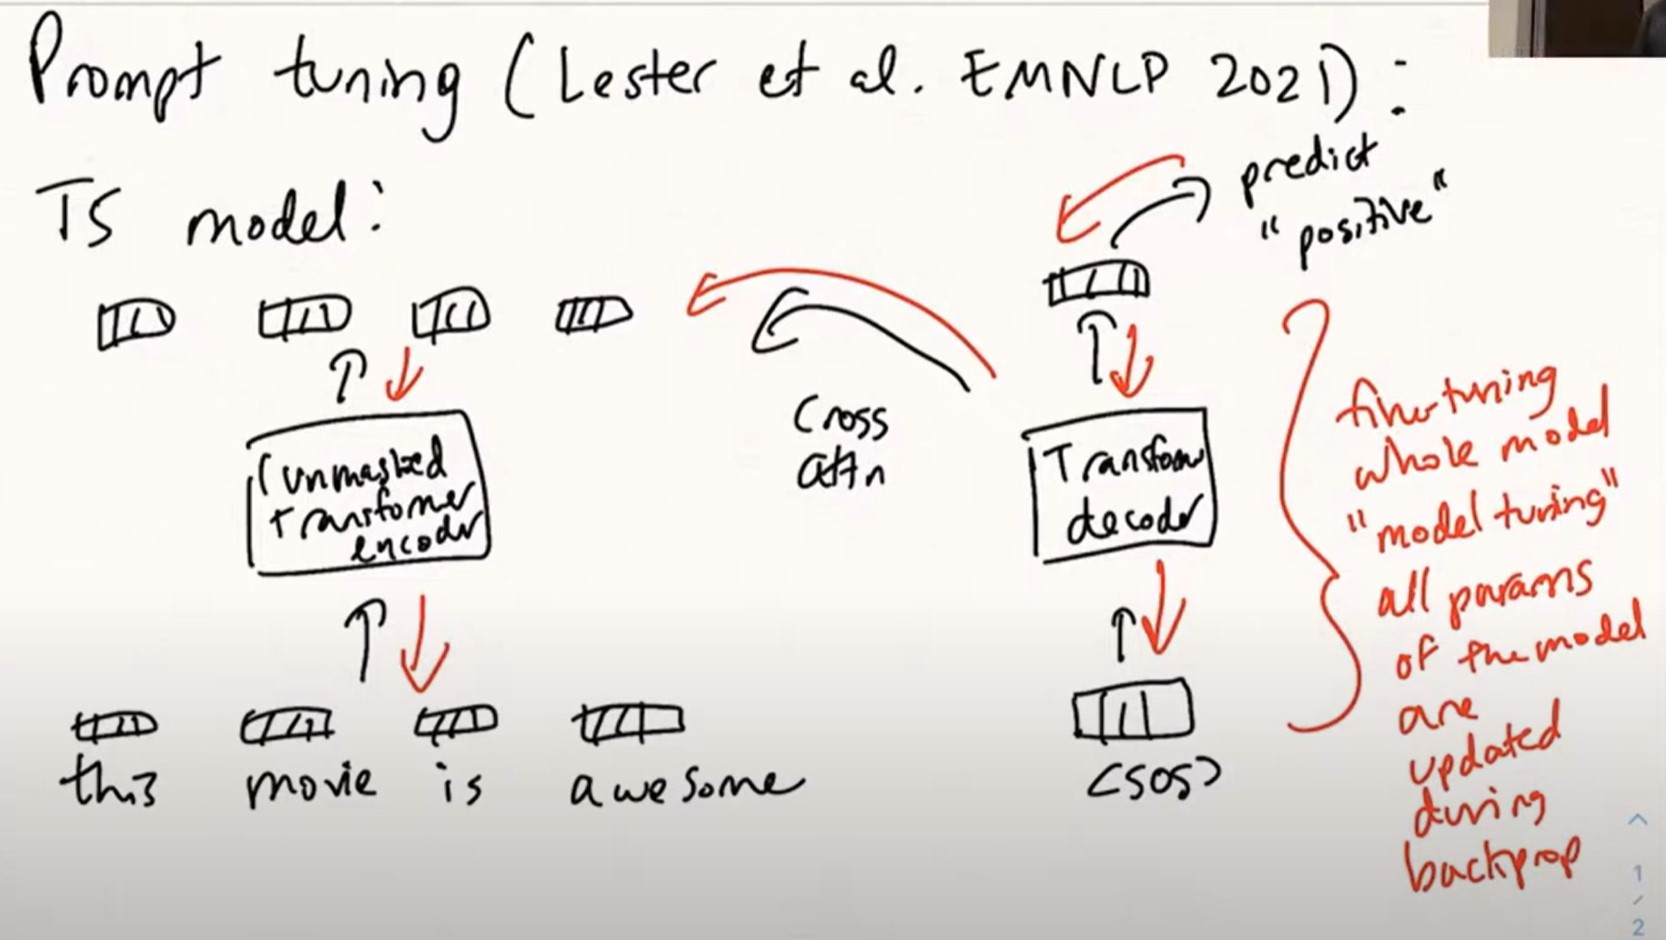 Prompt tuning (Lester et al. EMNLP 2021):
T5 model:
predict
"positive"
Cross
attn
(unmasked
transformer
encoder
Transformer
decoder
this movie is awesome
<SOS>
fine-tuning
whole model
"model tuning"
all params
of the model
are
updated
during
backprop
1
/
2